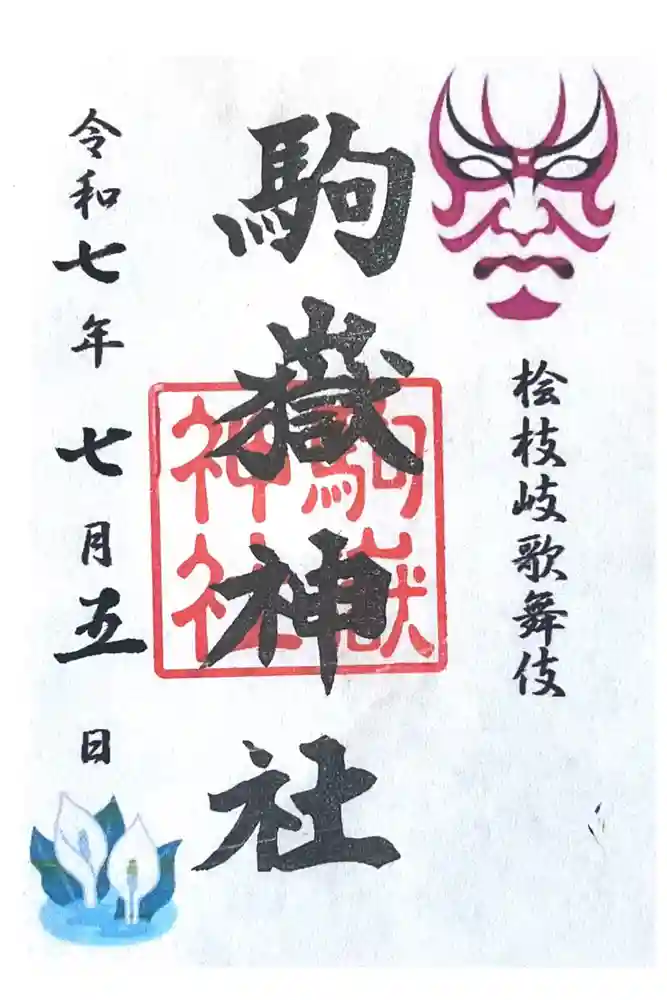 桧枝岐歌舞伎
駒嶽神社
駒嶽
神社
令和七年 七月五日